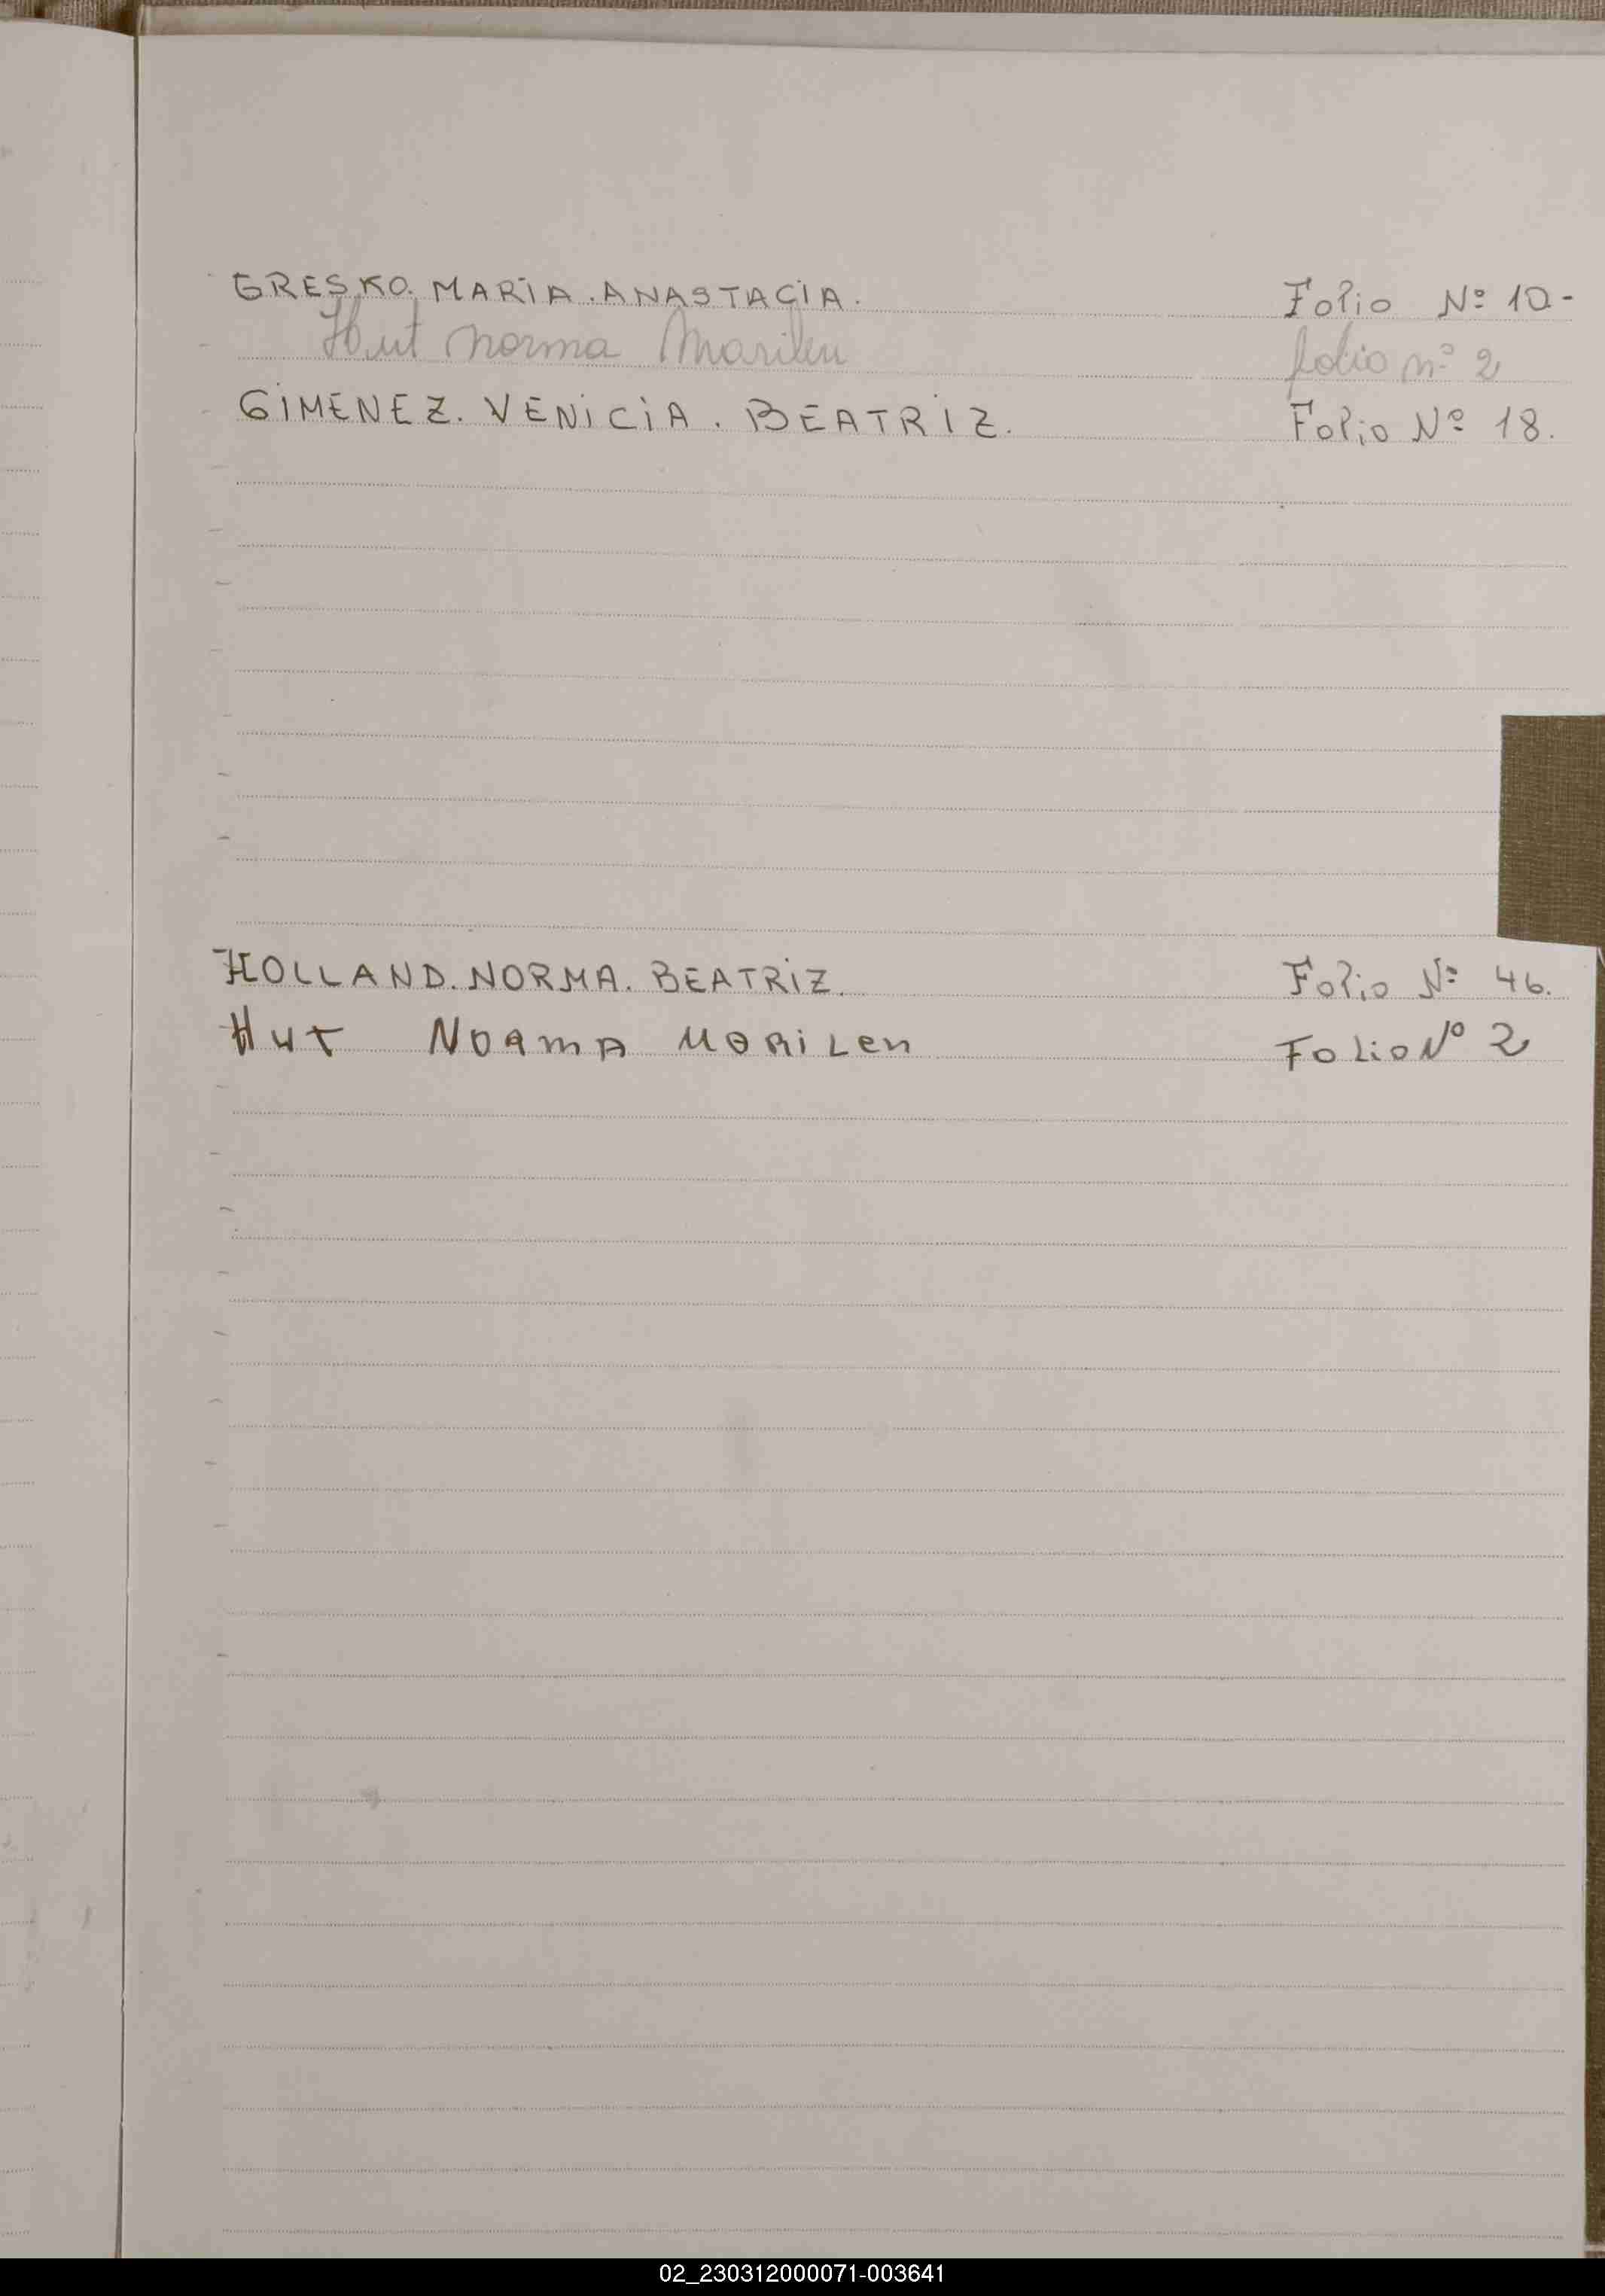 GRESKO. MARIA. ANASTACIA. Folio Nº 10-
Hut Norma Marilen folio nº 2
GIMENEZ. VENICIA. BEATRIZ. Folio Nº 18.
HOLLAND. NORMA. BEATRIZ. Folio Nº 46.
Hut Norma Marilen Folio Nº 2
02_230312000071-003641